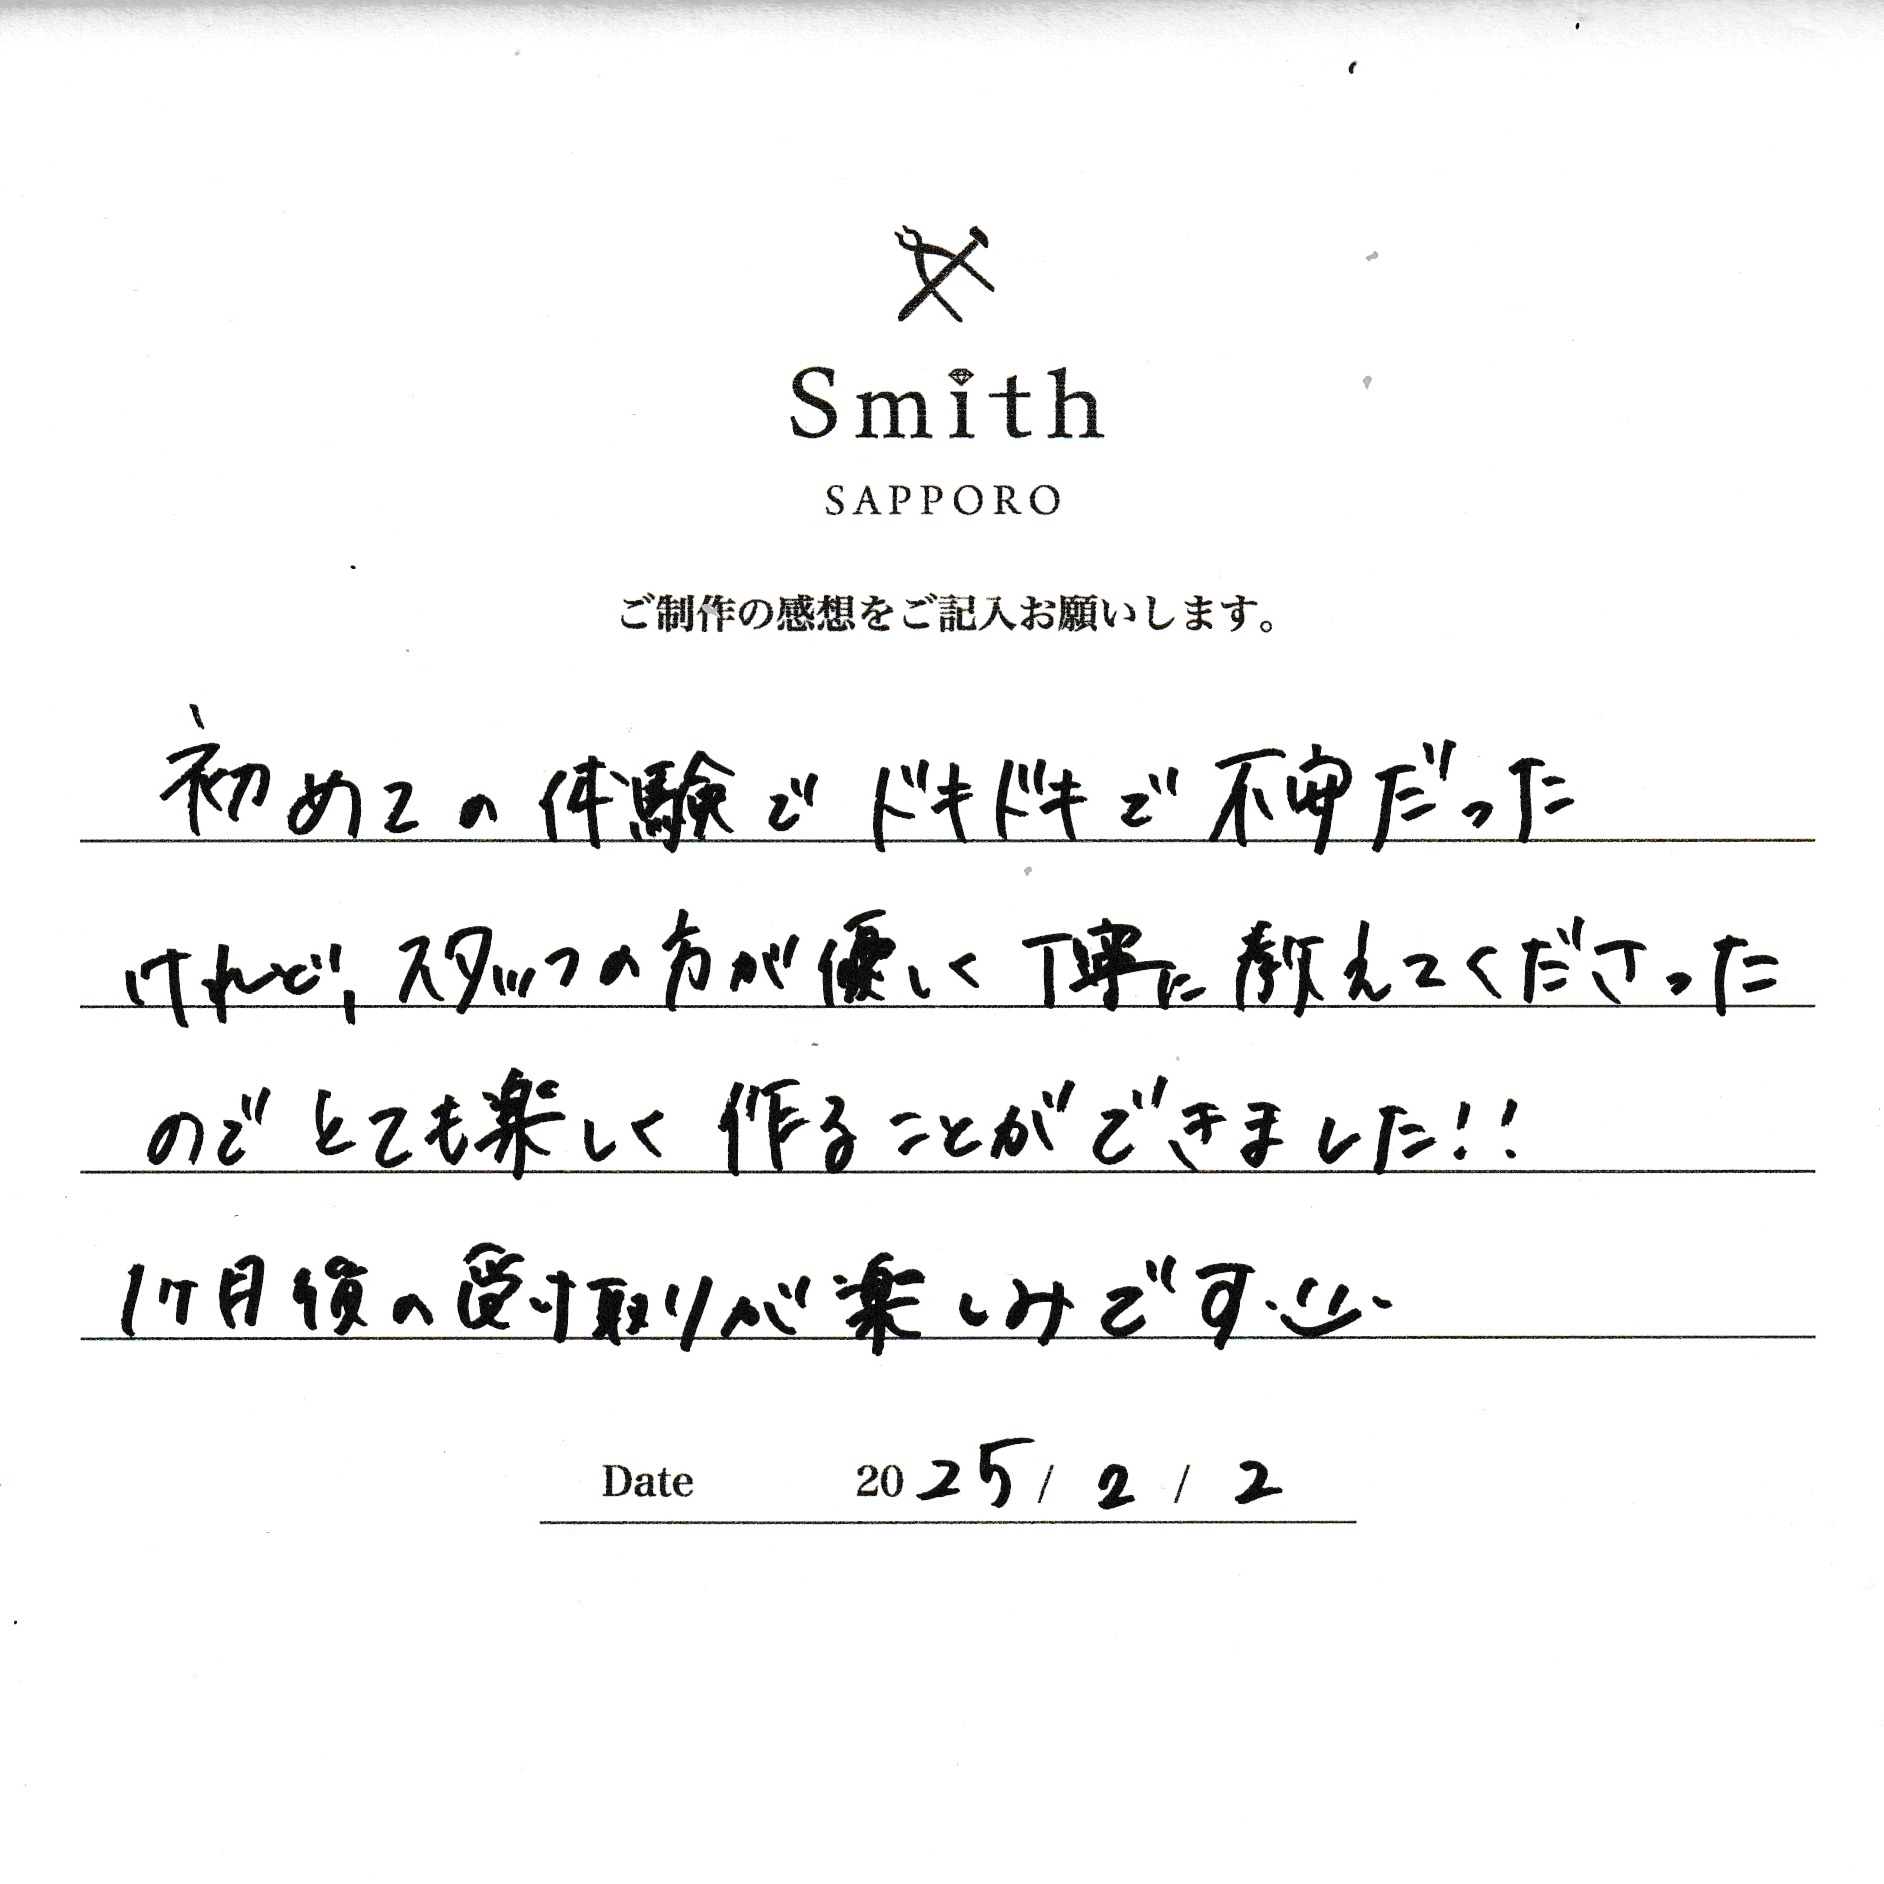 Smith
SAPPORO
ご制作の感想をご記入お願いします。
初めての体験でドキドキで不安だった
けれど、スタッフの方が優しく丁寧に教えてくださった
のでとても楽しく作ることができました!!
1ヶ月後の受け取りが楽しみです
Date 2025/2/2